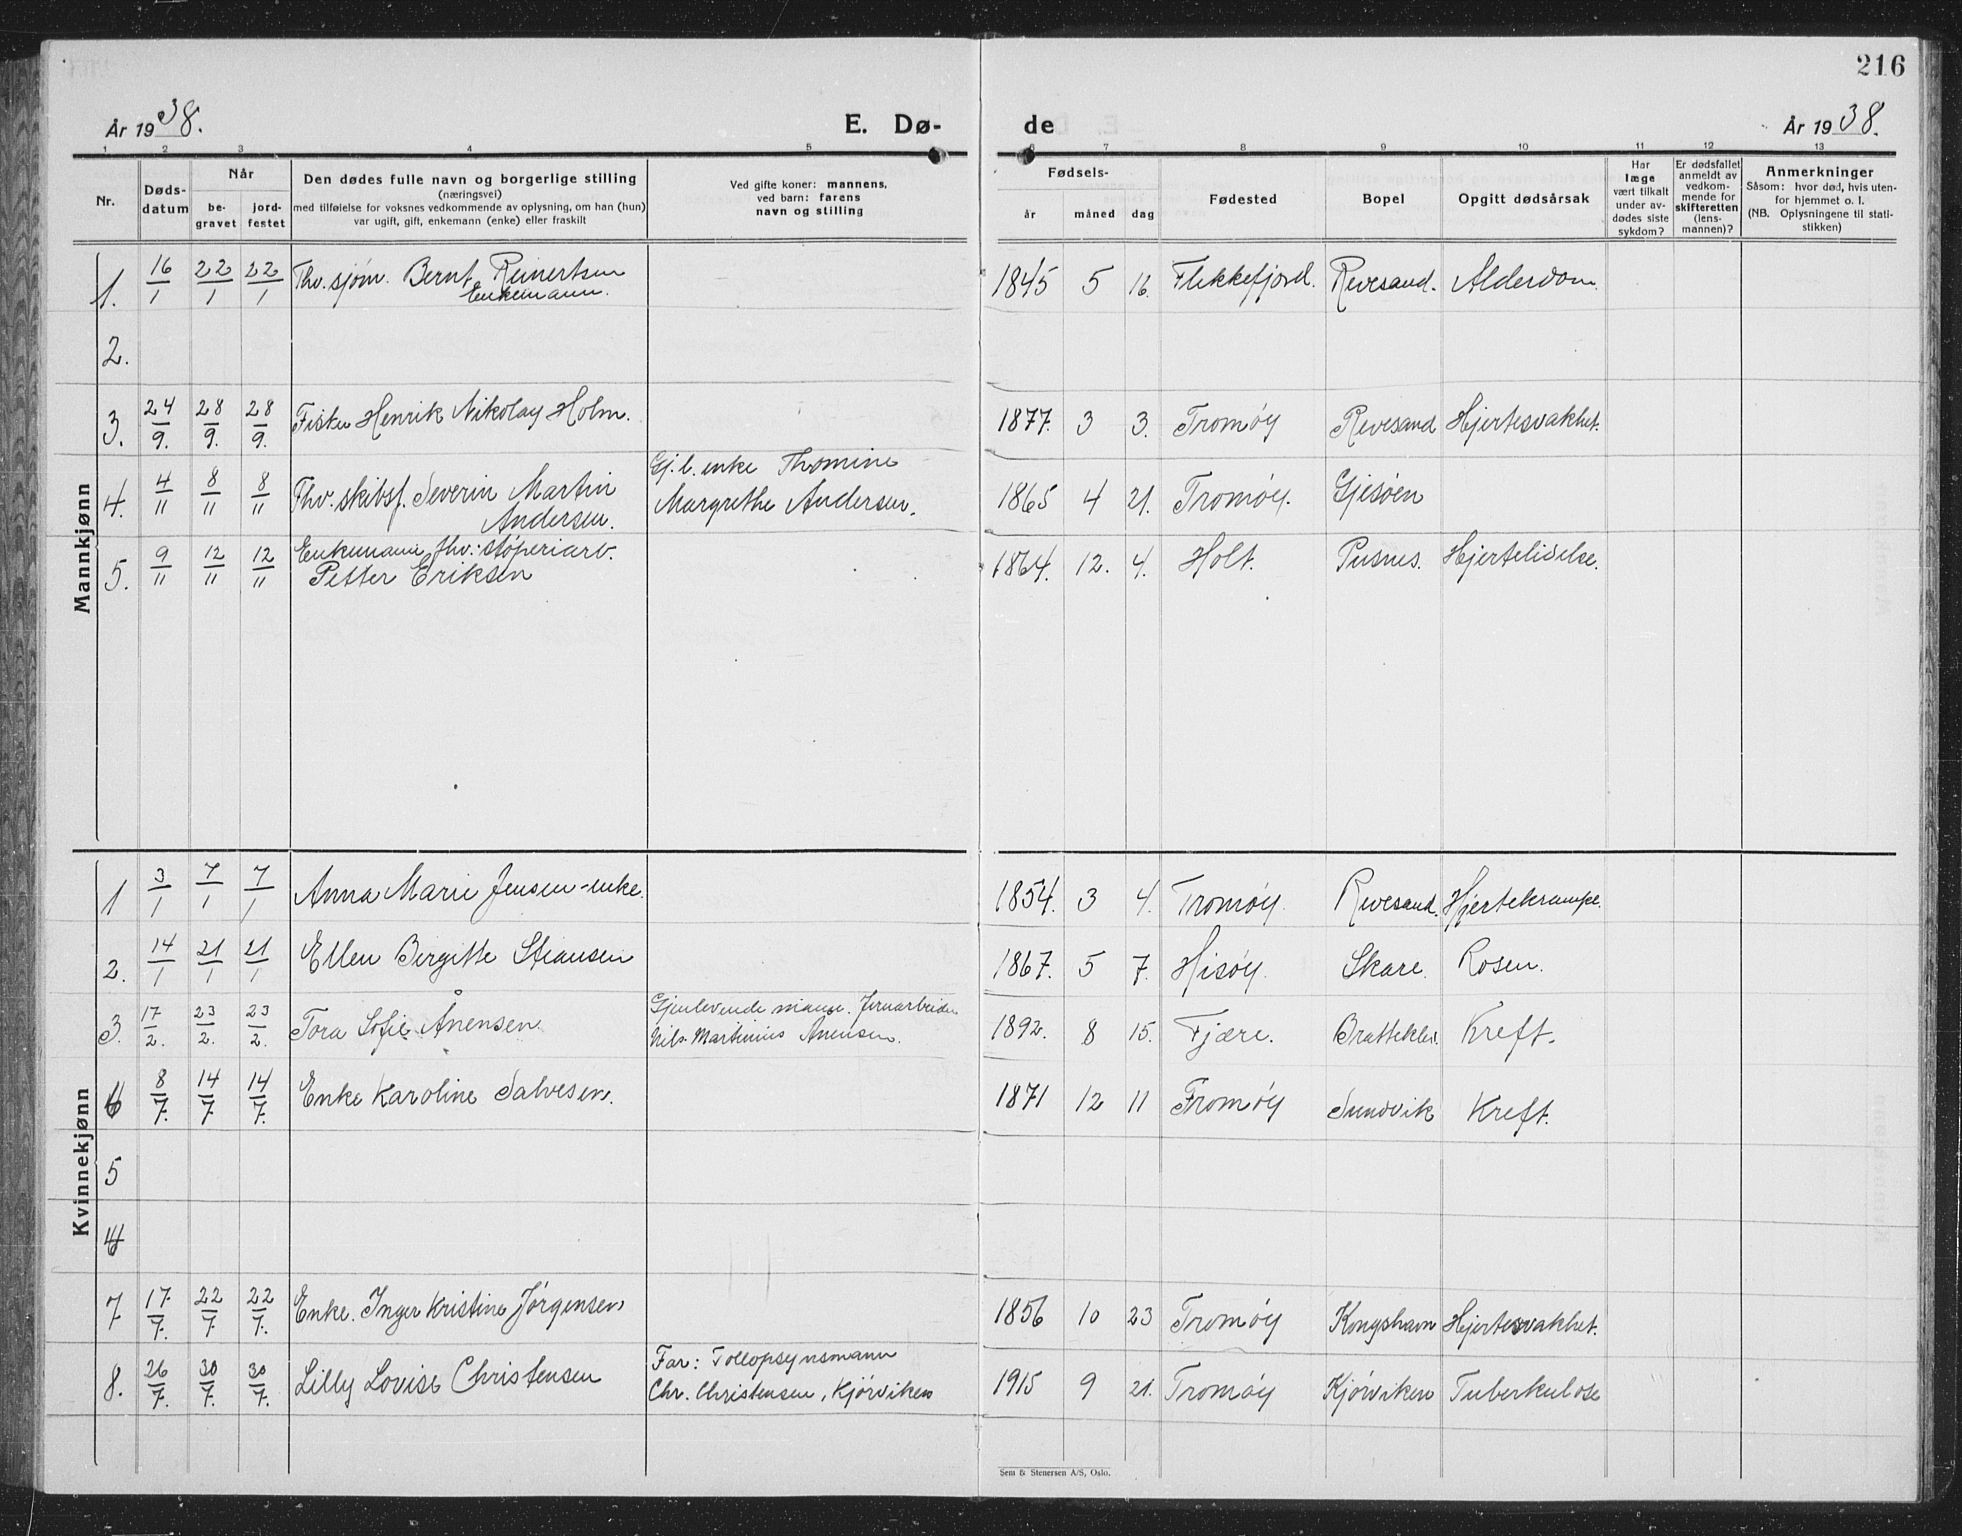 216
År 1938.
E. Dø-
de
År 1938.
1 2 3 4 5 6 7 8 9 10 11 12 13
Nr.
Døds-
datum
Når
be-
gravet
jord-
festet
Den dødes fulle navn og borgerlige stilling
(næringsvei)
med tilføielse for voksnes vedkommende av oplysning, om han (hun)
var ugift, gift, enkemann (enke) eller fraskilt
Ved gifte koner: mannens,
ved barn: farens
navn og stilling
Fødsels-
år måned dag
Fødested
Bopel
Opgitt dødsårsak
Har
læge
vært tilkalt
under av-
dødes siste
sykdom?
Er dødsfallet
anmeldt av
vedkom-
mende for
skifteretten
(lens-
mannen)?
Anmerkninger
Såsom: hvor død, hvis uten-
for hjemmet o. l.
(NB. Oplysningene til stati-
stikken)
Mannkjønn
1. 16/1 22/1 22/1 Fhv. sjøm. Bernt Reinertsen
Enkemann.
1845 5 16. Flekkefjord. Revesand. Alderdom.
2.
3. 24/9. 28/9. 28/9. Fisker Henrik Nikolay Holm.
1877. 3 3. Tromøy Revesand Hjertesvakhet.
4. 4/11 8/11 8/11 Fhv. skibsf. Severin Martin
Andersen.
Gj.l. enke Thomine
Margrethe Andersen.
1865 4 21. Tromøy. Gjesøen
5. 9/11 12/11 12/11 Enkemann fhv. støperiarb.
Petter Eriksen
1864. 12. 4. Holt. Pusnes. Hjertelidelse.
Kvinnekjønn
1 3/1 7/1 7/1 Anna Marie Jensen-enke.
1854. 3 4. Tromøy. Revesand. Hjertekrampe.
2. 14/1 21/1 21/1 Ellen Birgitte Stiansen
1867. 5 7. Hisøy. Skare. Rosen.
3. 17/2. 23/2. 23/2. Tora Sofie Ånensen
Gjenlevende mann. Jernarbeider
Nils Martinius Anensen.
1892. 8 15. Fjære. Bratteklev. Kreft.
4 8/7. 14/7 14/7. Enke Karoline Salvesen.
1871 12 11 Tromøy Sundvik Kreft.
5
7 17/7. 22/7 22/7. Enke. Inger Kristine Jørgensen
1856 10 23 Tromøy Kongshavn Hjertesvakhet.
8. 26/7. 30/7. 30/7. Lilly Lovise Christensen
Far: Tollopsynsmann
Chr. Christensen, Kjørviken
1915 9 21. Tromøy Kjørviken Tuberkulose
Sem & Stenersen A/S, Oslo.